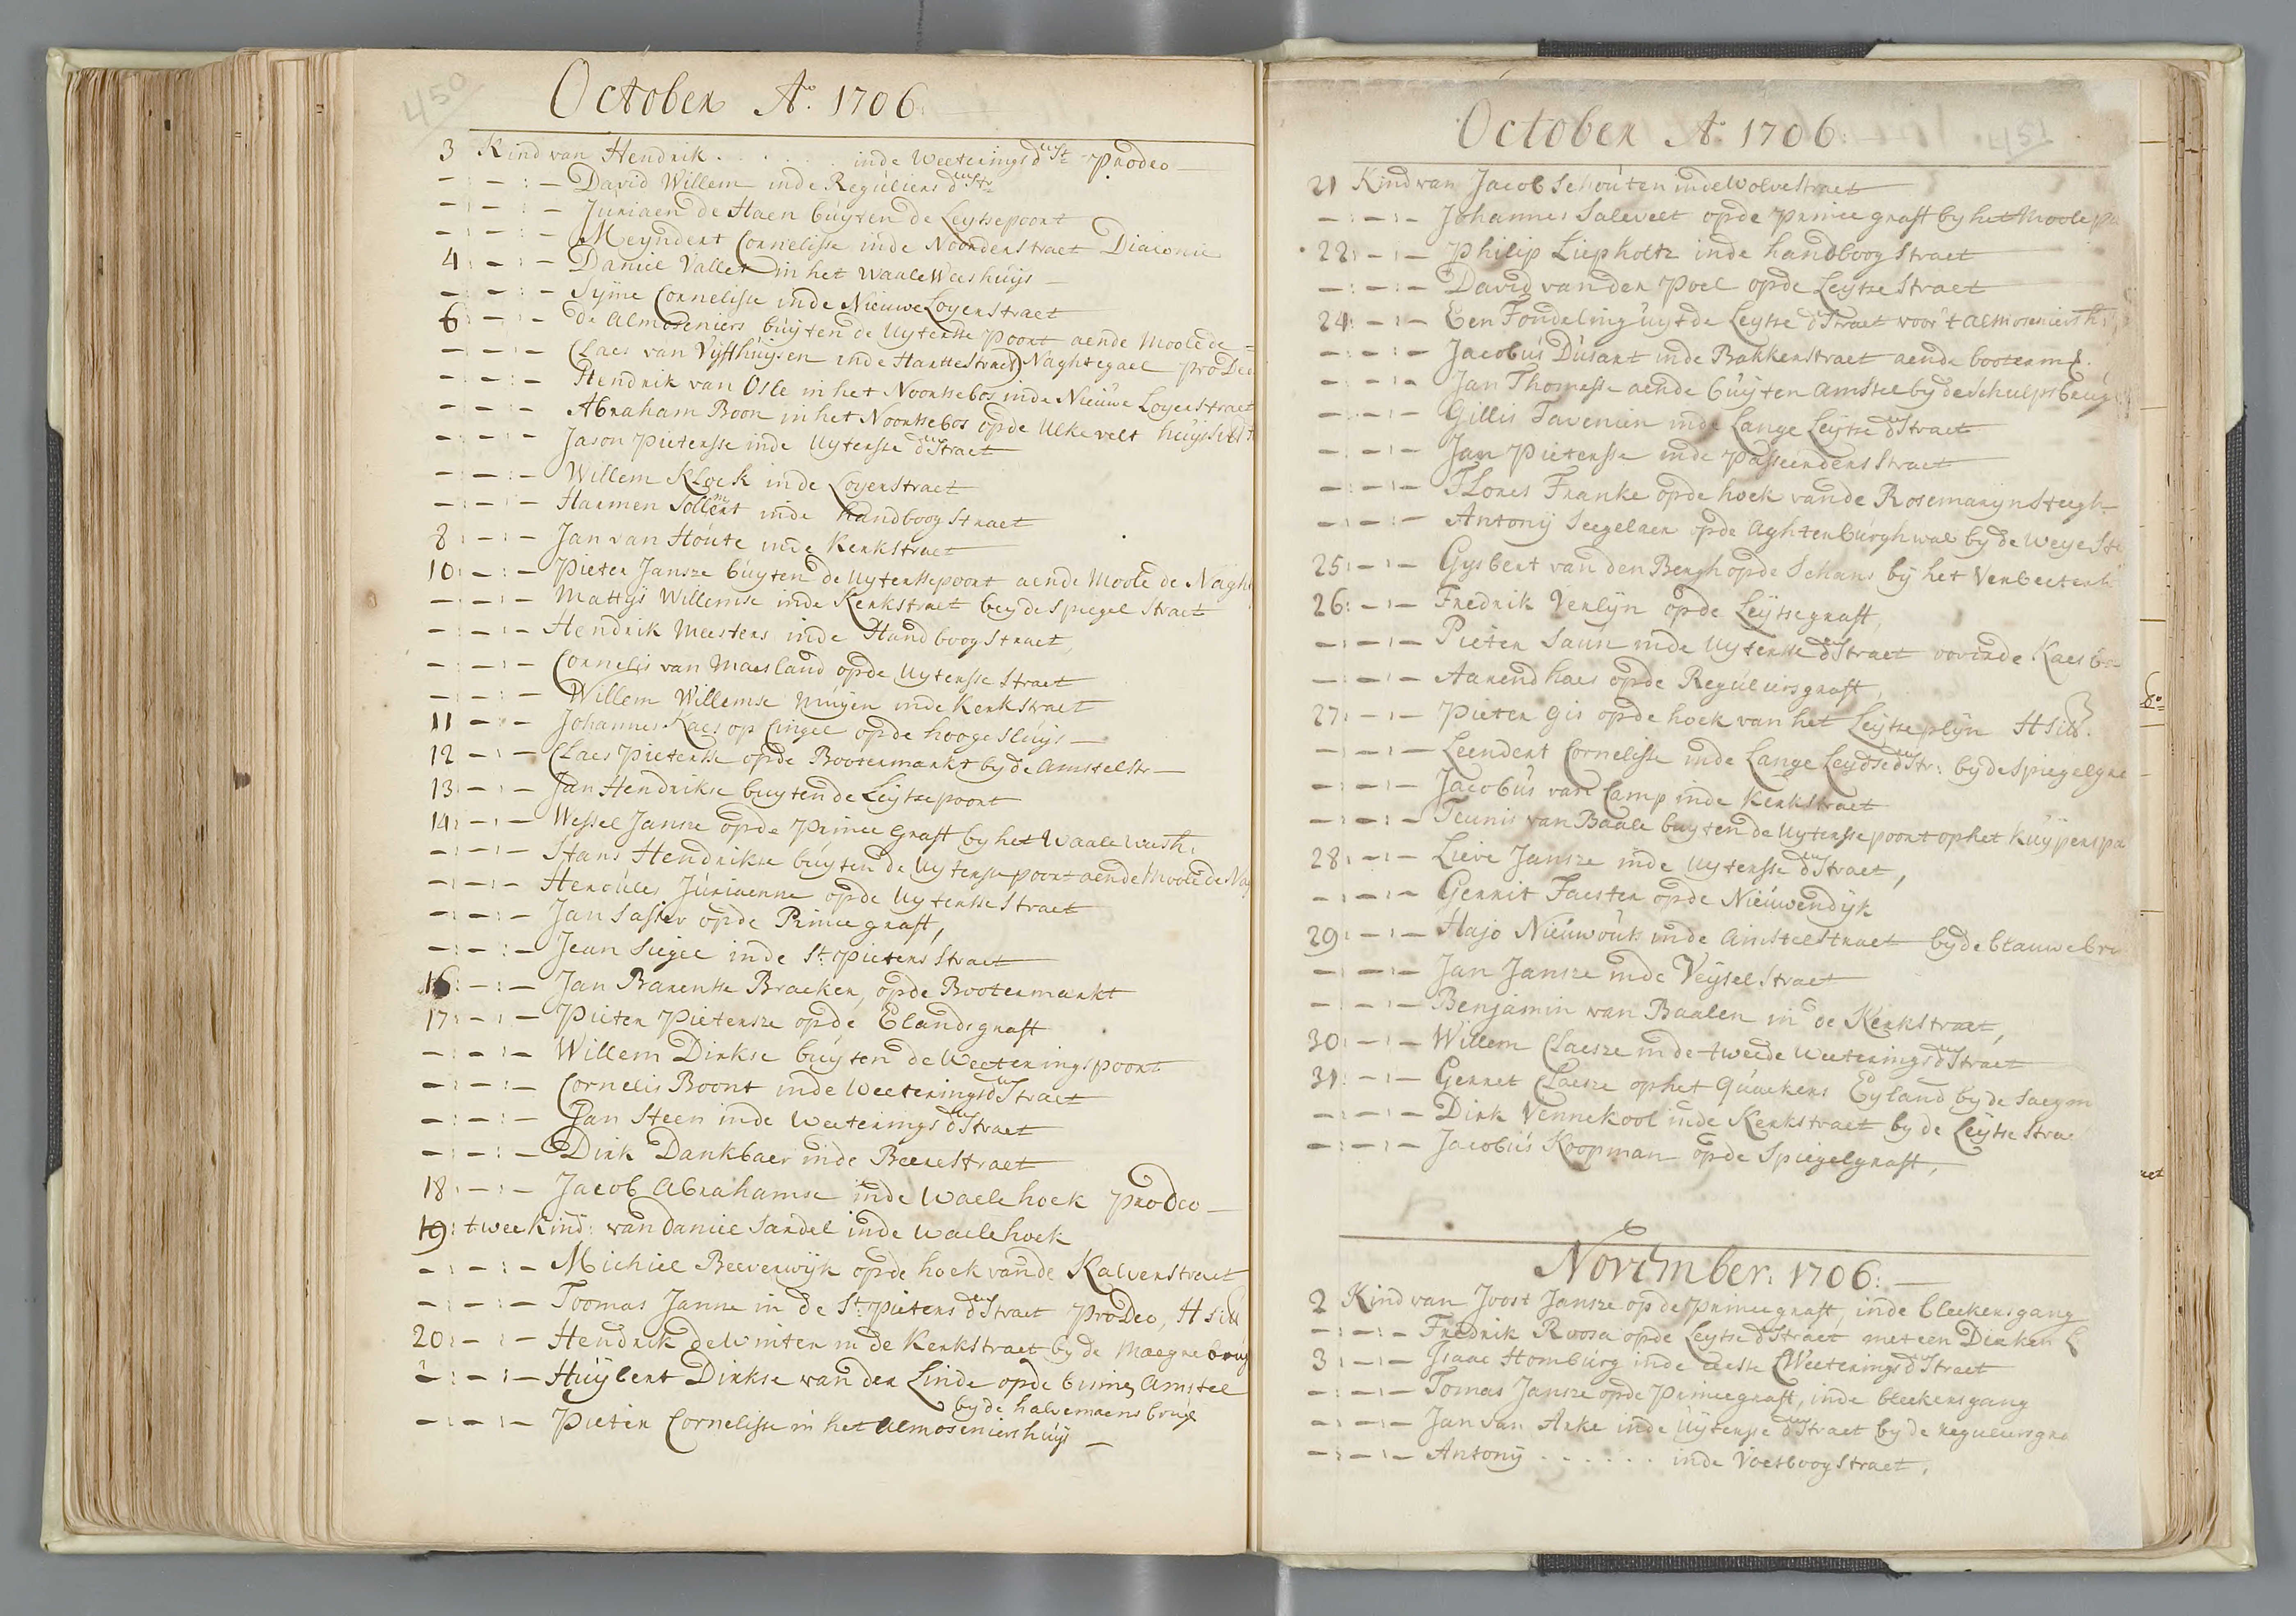 450
October Ao. 1706
3 Kind van Hendrik . . . . . . inde Weeterings dwst prodeo —
— : — : — David Willem inde Reguliers dwstr
— : — : — Juriaen de Haen buyten de Leytsepoort
— : — : — Meyndert Cornelisse inde Noorderstraet Diaconie
4 : — : — Daniel Vallet in het Waale Weeshuys —
— : — : — Syme Cornelisse inde Nieuwe Loyerstraet
6 : — : — de Almoseniers buyten de Uytersse poort aende Moole de =
— : — : — Claes van Vyfthuysen inde Harttestraet) Naghtegael pro Deo
— : — : — Hendrik van Osse in het Noortsebos inde Nieuwe Loyerstraet
— : — : — Abraham Boon in het Noortsebos opde Ulke velt
— : — : — Jason Pietersse inde Uytersse dwstraet
— : — : — Willem Klock inde Loyerstraet
— : — : — Harmen inde handboog straet
8 : — : — Jan van Houte inde Kerkstraet
10 : — : — Pieter Jansze buyten de Uytersse poort aende Moole de Nagh
— : — : — Mattys Willemse inde Kerkstraet bey de Spiegel Straet
— : — : — Hendrik Meesters inde Handboog Straet,
— : — : — Cornelis van Maesland opde Uytersse Straet
— : — : — Willem Willemse Muyen inde Kerkstraet
11 — : — Johannes Kaes op Cingel opde hooge sluys —
12 — : — Claes Pietersse opde Bootermarkt by de Amstelstr —
13 : — : — Jan Hendrikse buyten de Leytsepoort
14 : — : — Wessel Jansze opde Prince Graft by het Waale Weesh:
— : — : — Hans Hendrikse buyten de Uytersse poort aende Moole de Nag
— : — : — Hercules Juriaense opde Uytersse Straet
— : — : — Jan opde Prince graft,
— : — : — Jean Siegel inde St. Pieters Straet
16 : — : — Jan Barentse Bracker, opde Bootermarkt
17 : — : — Pieter Pietersze opde Elandsgraft
— : — : — Willem Dirkse buyten de Weeteringspoort
— : — : — Cornelis Boont inde Weeterings dwstraet
— : — : — Jan Steen inde Weeterings dwstraet
— : — : — Dirk Dankbaer inde Beerestraet
18 : — : — Jacob Abrahamse inde Waele hoek prodeo —
19 : twee Kind: van Daniel Sandel inde Waelehoek
— : — : — Michiel Beeverwyk opde hoek vande Kalverstraet
— : — : — Toomas Janse in de St. Pieters dwstraet pro Deo,
20 : — : — Hendrik de Winter in de Kerkstraet by de Maegre brug
— : — : — Huybert Dirkse van der Linde opde binne Amstel
by de halvemaens brug
— : — : — Pieter Cornelisse in het Almoseniershuys —
451
October Ao. 1706 :
21 Kind van Jacob Schouten inde Wolvestraet
— : — : — Johannes Salevelt opde Prince graft by het Moole pa
22 : — : — Philip Liepholtz inde handboog Straet
— : — : — David van der Poel opde Leytse Straet
24 : — : — Een Fondeling uyt de Leytse dwstraet voor 't Almoseniersh:
— : — : — Jacobus Dusart inde Bakkerstraet aende booterm
— : — : — Jan Thomasse aende buyten Amstel by de Schulpsbrug
— : — : — Gillis Tavenier inde Lange Leytse dwstraet
— : — : — Jan Pietersse inde Passeerders Straet
— : — : — Flores Franke opde hoek vande Rosemaryn Steegh —
— : — : — Antony Seegelaer opde Aghterburghwal by de
25 : — : — Gysbert van den Bergh opde Schans by het Verbeeterh
26 : — : — Fredrik Verlyn opde Leytsegraft,
— : — : — Pieter Saun inde Uytersse dwstraet
— : — : — Aarend haes opde Reguliersgraft,
27 : — : — Pieter Gis opde hoek van het Leytse plyn
— : — : — Leendert Cornelisse inde Lange Leydse dwstr: by de Spiegelgra
— : — : — Jacobus van Camp inde Kerkstraet
— : — : — Teunis van Baale buyten de Uytersse poort op het Kuyperspa
28 : — : — Lieve Jansze inde Uytersse dwstraet,
— : — : — Gerrit Faester opde Nieuwendyk
29 : — : — Hajo Nieuwouts inde Amstelstraet by de blauwe bru
— : — : — Jan Jansze inde Veysel Straet
— : — : — Benjamin van Baalen in de Kerkstraet,
30 : — : — Willem Claesze in de tweede Weeterings dwstraet
31 : — : — Gerret Claesze op het Quaekers Eyland by de Saegm
— : — : — Dirk Vennekool inde Kerkstraet by de Leytse Strae
— : — : — Jacobus Koopman opde Spiegelgraft,
November: 1706 : —
2 Kind van Joost Jansze opde Princegraft, inde bleekersgang
— : — : — Fredrik Roosa opde Leytse dwstraet met een
3 : — : — Isaac Homburg inde eerste Weeterings dwstraet
— : — : — Tomas Jansze opde Princegraft, inde bleekersgang
— : — : — Jan van Arke inde Uytersse dwstraet by de reguliersgra
— : — : — Antony . . . . . . inde Voetboog straet,